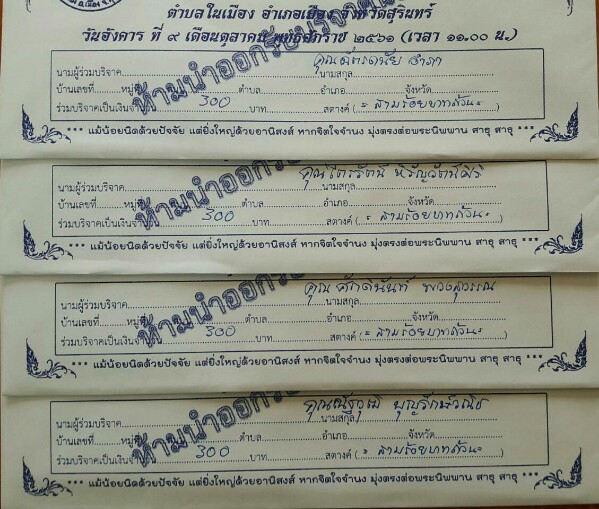 ตำบลในเมือง อำเภอเมือง จังหวัดสุรินทร์
วันอังคาร ที่ ๙ เดือนตุลาคม พุทธศักราช ๒๕๖๑ (เวลา ๑๑.๐๐ น.)
ห้ามนำออก
คุณ
นามผู้ร่วมบริจาค นามสกุล
บ้านเลขที่ หมู่ที่ ตำบล อำเภอ จังหวัด
ร่วมบริจาคเป็นเงินจำนวน 300 บาท สตางค์ (= สามร้อยบาทถ้วน=)
*** แม้น้อยนิดด้วยปัจจัย แต่ยิ่งใหญ่ด้วยอานิสงส์ หากจิตใจจำนง มุ่งตรงต่อพระนิพพาน สาธุ สาธุ ***
ห้ามนำออก
คุณไตรรัตน์ หิรัญวัฒน์ศิริ
นามผู้ร่วมบริจาค นามสกุล
บ้านเลขที่ หมู่ที่ ตำบล อำเภอ จังหวัด
ร่วมบริจาคเป็นเงินจำนวน 300 บาท สตางค์ (= สามร้อยบาทถ้วน=)
*** แม้น้อยนิดด้วยปัจจัย แต่ยิ่งใหญ่ด้วยอานิสงส์ หากจิตใจจำนง มุ่งตรงต่อพระนิพพาน สาธุ สาธุ ***
ห้ามนำออก
คุณ ศักดินันท์ พวงสุวรรณ
นามผู้ร่วมบริจาค นามสกุล
บ้านเลขที่ หมู่ที่ ตำบล อำเภอ จังหวัด
ร่วมบริจาคเป็นเงินจำนวน 300 บาท สตางค์ (= สามร้อยบาทถ้วน=)
*** แม้น้อยนิดด้วยปัจจัย แต่ยิ่งใหญ่ด้วยอานิสงส์ หากจิตใจจำนง มุ่งตรงต่อพระนิพพาน สาธุ สาธุ ***
ห้ามนำออก
คุณณัฐวุฒิ บุญรักษ์วณิช
นามผู้ร่วมบริจาค นามสกุล
บ้านเลขที่ หมู่ที่ ตำบล อำเภอ จังหวัด
ร่วมบริจาคเป็นเงินจำนวน 300 บาท สตางค์ (= สามร้อยบาทถ้วน=)
*** แม้น้อยนิดด้วยปัจจัย แต่ยิ่งใหญ่ด้วยอานิสงส์ หากจิตใจจำนง มุ่งตรงต่อพระนิพพาน สาธุ สาธุ ***